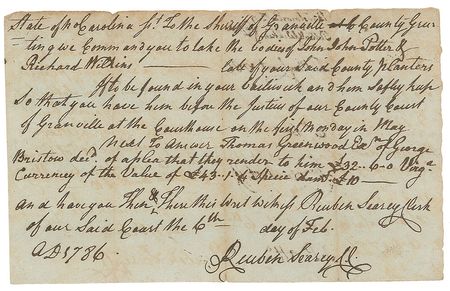 State of No Carolina ss. To the Sheriff of Granville County Gree
ting we Command you to take the bodey of John John Potter &
Richard Wilkins late of your Said County Planters
If to be found in your bailiwick and him Safley keep
So that you have him before the Justices of our County Court
of Granville at the Courthouse on the first Monday in May
Next To answer Thomas Greenwood Exr of George
Bristow decd. of a plea that they render to him £32-0-0 Virga
Currency of the Value of £43.1.4 Specie damd. £10
and have you then & There this Writ witness Reuben Searcy Clerk
of our Said Court the 6th day of Feb.
AD 1786. Reuben Searcy CC.